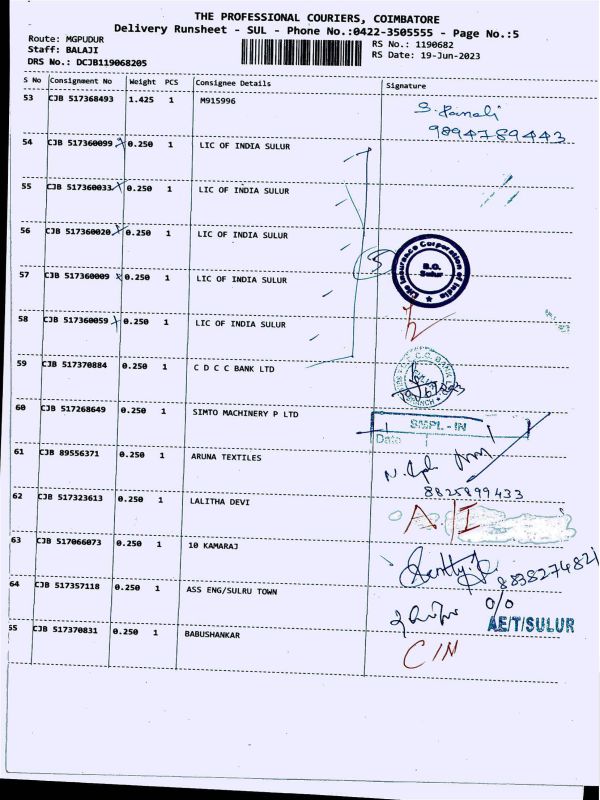 THE PROFESSIONAL COURIERS, COIMBATORE
Delivery Runsheet - SUL - Phone No.:0422-3505555 - Page No.:5
Route: MGPUDUR RS No.: 1190682
Staff: BALAJI RS Date: 19-Jun-2023
DRS No.: DCJB119068205
S No Consignment No Weight PCS Consignee Details Signature
53 CJB 517368493 1.425 1 M915996
9894789443
54 CJB 517360099 0.250 1 LIC OF INDIA SULUR
55 CJB 517360033 0.250 1 LIC OF INDIA SULUR
56 CJB 517360020 0.250 1 LIC OF INDIA SULUR
5
Life Insurance Corporation of India
B.O.
Sulur
57 CJB 517360009 0.250 1 LIC OF INDIA SULUR
58 CJB 517360059 0.250 1 LIC OF INDIA SULUR
59 CJB 517370884 0.250 1 C D C C BANK LTD
60 CJB 517268649 0.250 1 SIMTO MACHINERY P LTD
SMPL-IN
Date
61 CJB 89556371 0.250 1 ARUNA TEXTILES
8825899433
62 CJB 517323613 0.250 1 LALITHA DEVI
A/I
63 CJB 517066073 0.250 1 10 KAMARAJ
64 CJB 517357118 0.250 1 ASS ENG/SULRU TOWN
O/o
AE/T/SULUR
55 CJB 517370831 0.250 1 BABUSHANKAR
C/N